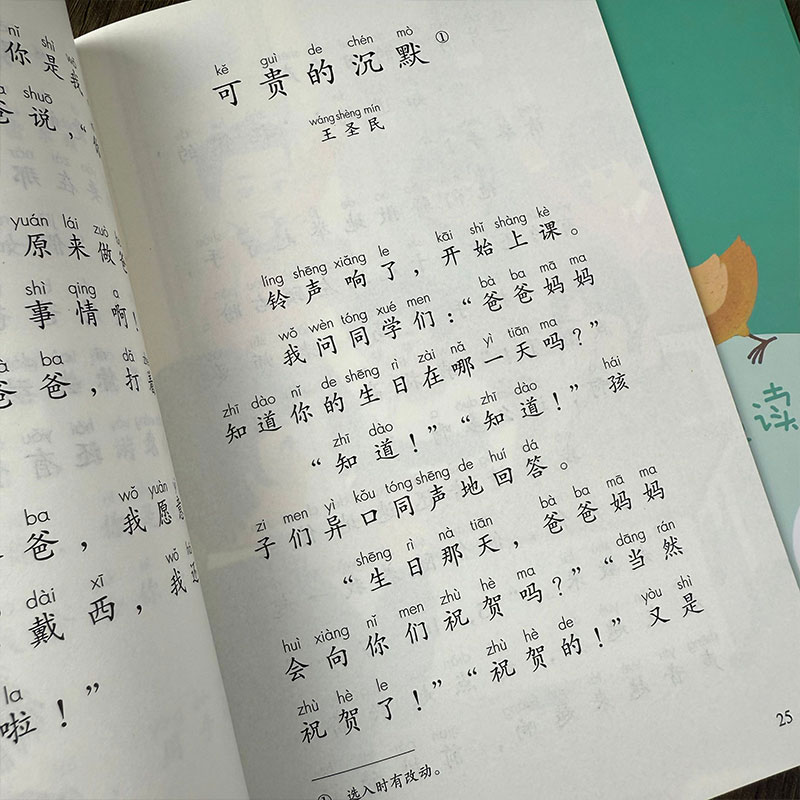 nǐ shì wǒ
你是我
shuō
爸说，“
yuán lái zuò bà
原来做爸
shì qing a
事情啊！
ba dǎ
爸爸，打
ba wǒ yuàn
爸，我愿意
dài xī wǒ
戴西，我还
la
啦！”
kě guì de chén mò
可贵的沉默①
wáng shèng mín
王圣民
líng shēng xiǎng le kāi shǐ shàng kè
铃声响了，开始上课。
wǒ wèn tóng xué men bà ba mā ma
我问同学们：“爸爸妈妈
zhī dào nǐ de shēng rì zài nǎ yì tiān ma
知道你的生日在哪一天吗？”
zhī dào zhī dào hái
“知道！”“知道！”孩
zi men yì kǒu tóng shēng de huí dá
子们异口同声地回答。
shēng rì nà tiān bà ba mā ma
“生日那天，爸爸妈妈
huì xiàng nǐ men zhù hè ma dāng rán
会向你们祝贺吗？”“当然
zhù hè le zhù hè de yòu shì
祝贺了！”“祝贺的！”又是
① 选入时有改动。
25
读